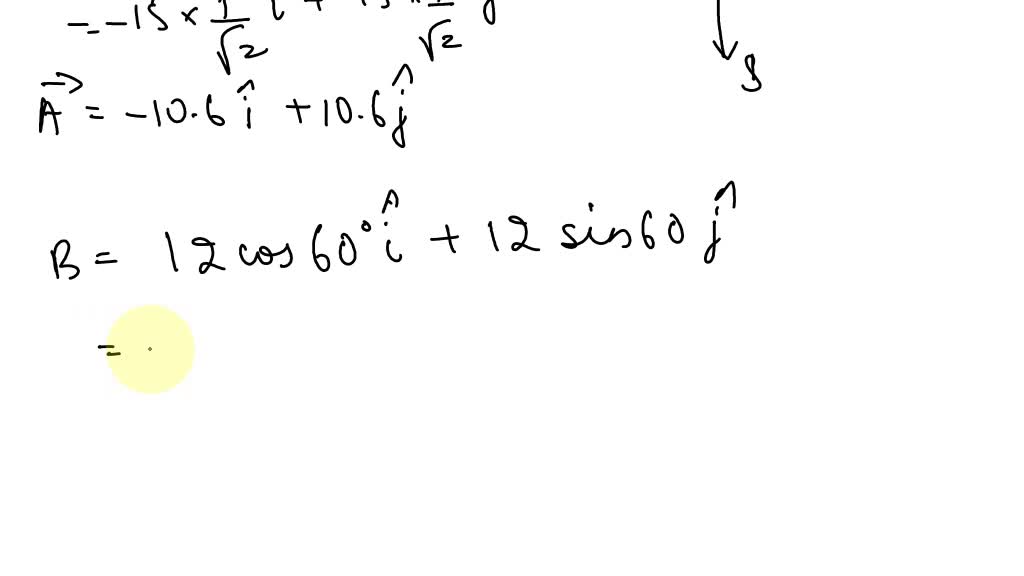 = -15 × 1/√2 i + 15 × 1/√2 j
S
A⃗ = -10.6 î + 10.6 ĵ
B = 12 cos 60° î + 12 sin 60 ĵ
=